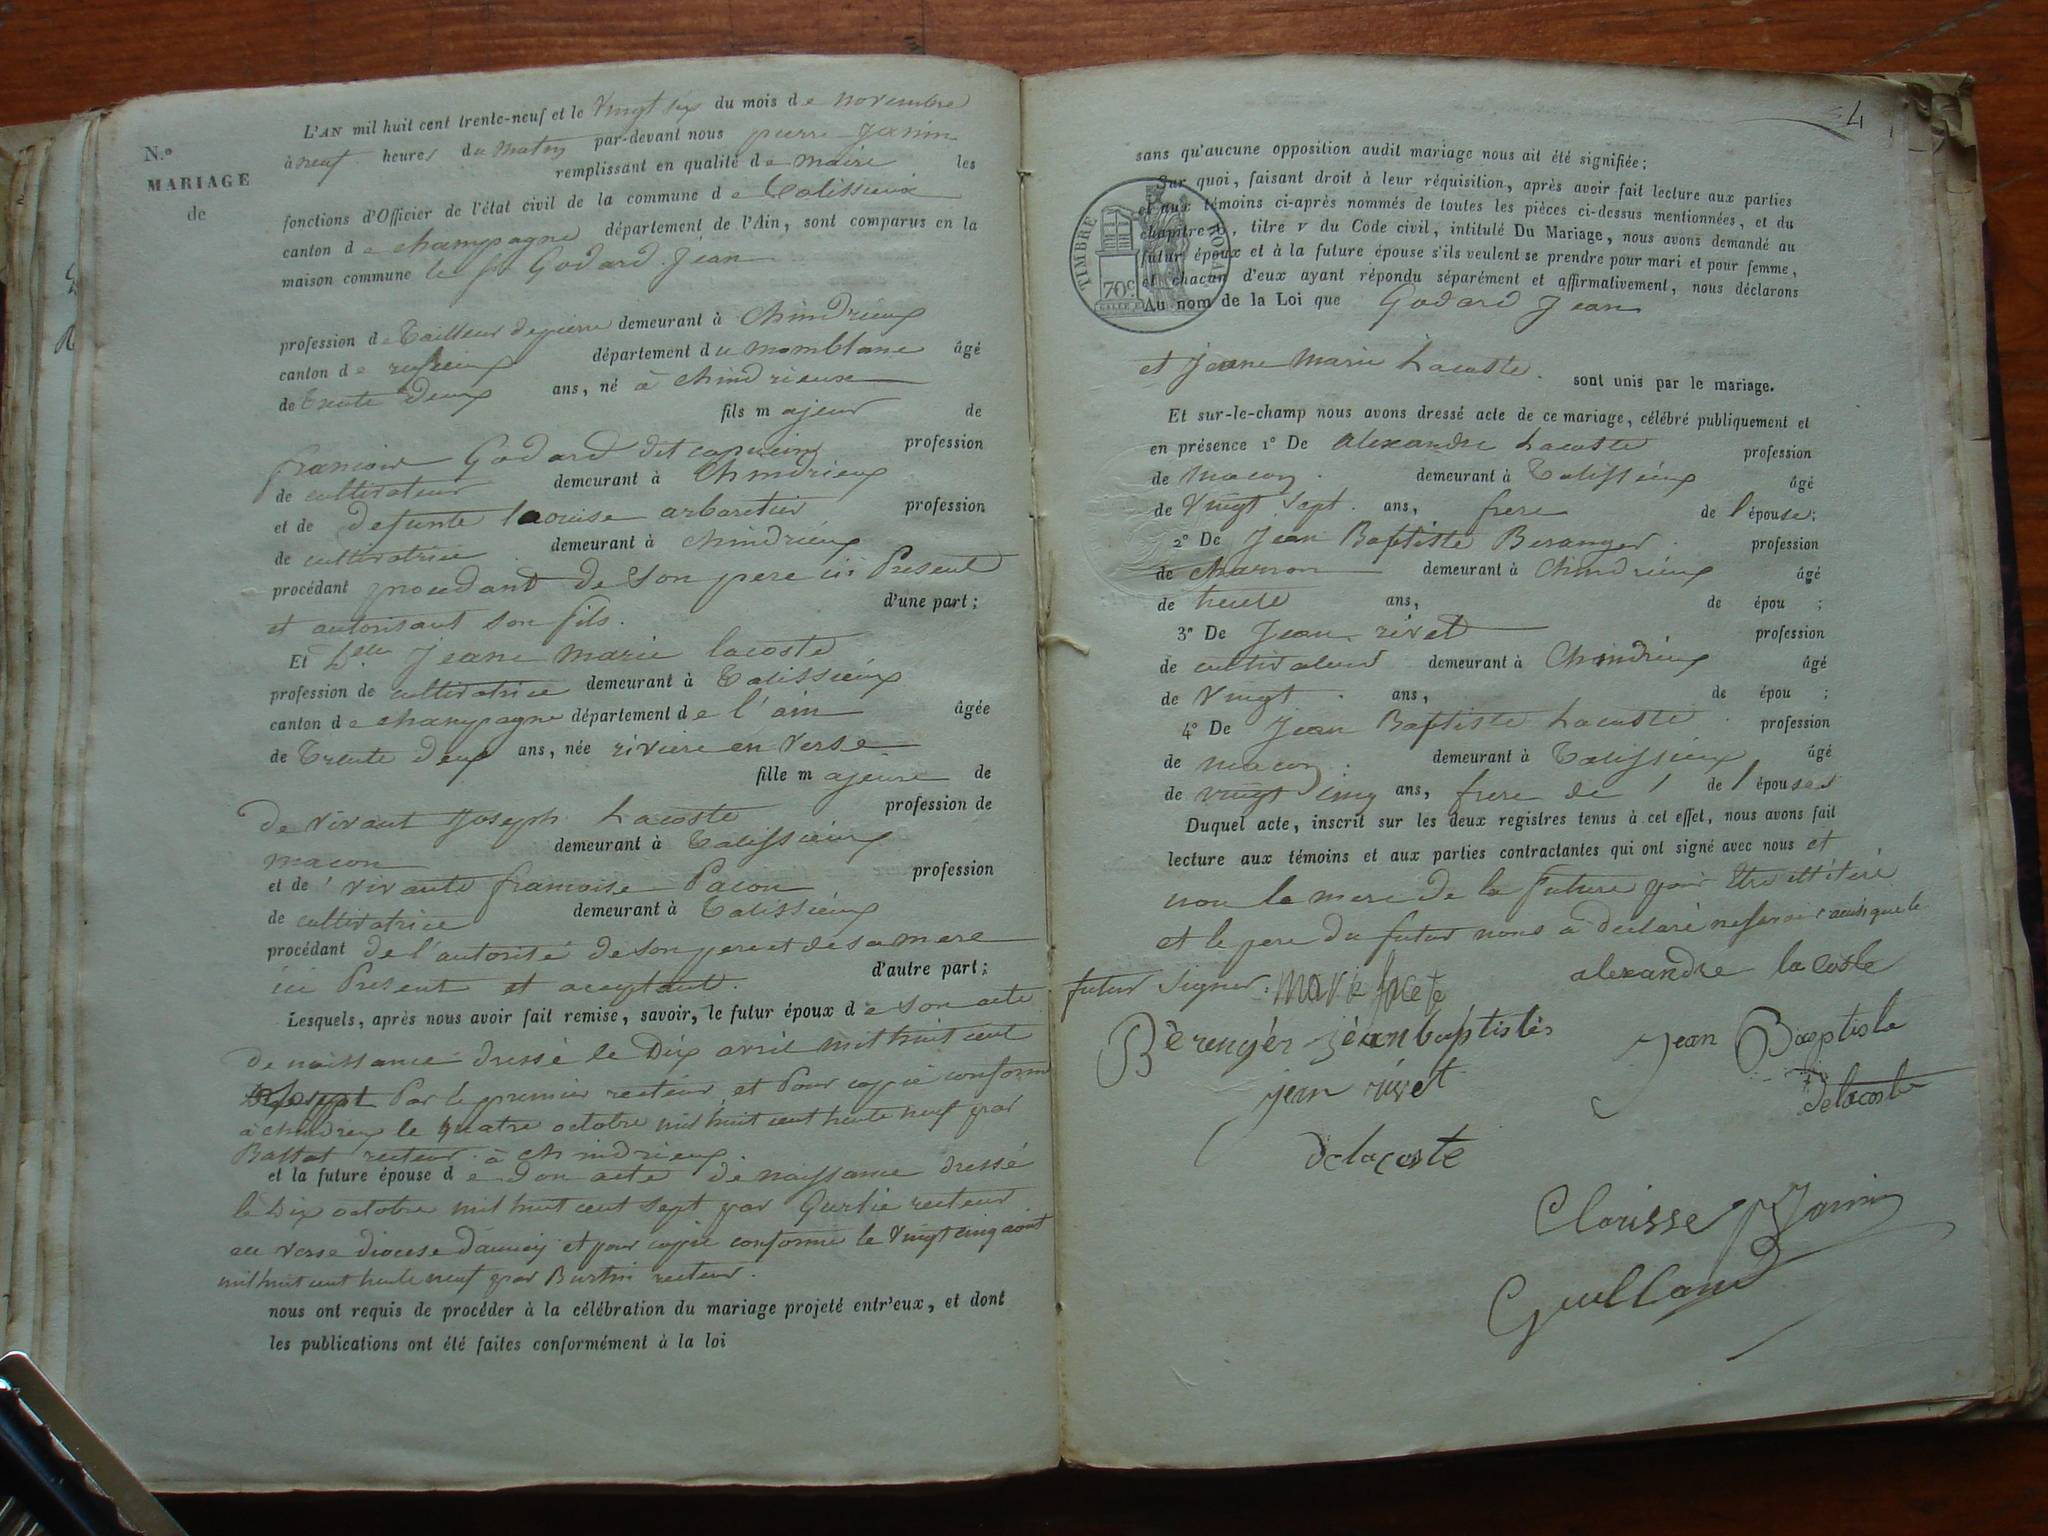 N.º
MARIAGE
de
L'AN mil huit cent trente-neuf et le Vingt six du mois de novembre
à neuf heures du matin par-devant nous pierre Janin
remplissant en qualité de maire les
fonctions d'Officier de l'état civil de la commune de talissieux
canton de champagne département de l'Ain, sont comparus en la
maison commune le sr Godard Jean
profession de tailleur de pierre demeurant à Chindrieux
canton de département du momblanc âgé
de trente deux ans, né à chindrieux
fils majeur de
francois Godard dit capucin profession
de cultivateur demeurant à Chindrieux
et de defunte louise arbaretier profession
de cultivatrice demeurant à chindrieux
procédant procedant de son pere ici Present
et autorisant son fils. d'une part;
Et Delle Jeane marie lacoste
profession de cultivatrice demeurant à talissieux
canton de champagne département de l'ain âgée
de trente deux ans, née riviere en verse
fille majeure de
de vivant Joseph Lacoste profession de
macon demeurant à talissieux
et de vivante francoise Pacon profession
de cultivatrice demeurant à talissieux
procédant de l'autorité de son pere et de sa mere
ici Present et aceptant. d'autre part;
Lesquels, après nous avoir fait remise, savoir, le futur époux de son acte
de naissance dressé le Dix avril mil huit cent
sept Par le premier recteur et Pour copie conforme
à chindrieux le quatre octobre mil huit cent trente neuf par
Ballat recteur à chindrieux.
et la future épouse de son acte de naissance dressé
le Dix octobre mil huit cent sept par recteur
au verse diocese d'annecy et pour copie conforme le Vingt cinq aout
mil huit cent trente neuf par Burtin recteur.
nous ont requis de procéder à la célébration du mariage projeté entr'eux, et dont
les publications ont été faites conformément à la loi
4
sans qu'aucune opposition audit mariage nous ait été signifiée;
Sur quoi, faisant droit à leur réquisition, après avoir fait lecture aux parties
et aux témoins ci-après nommés de toutes les pièces ci-dessus mentionnées, et du
chapitre, titre v du Code civil, intitulé Du Mariage, nous avons demandé au
futur époux et à la future épouse s'ils veulent se prendre pour mari et pour femme,
et chacun d'eux ayant répondu séparément et affirmativement, nous déclarons
Au nom de la Loi que Godard Jean
TIMBRE ROYAL
70c
et Jeane Marie Lacoste. sont unis par le mariage.
Et sur-le-champ nous avons dressé acte de ce mariage, célébré publiquement et
en présence 1º De alexandre Lacoste profession
de macon. demeurant à talissieux âgé
de Vingt sept. ans, frere de l'épouse;
2º De Jean Baptiste Beranger profession
de charron demeurant à Chindrieux âgé
de trente ans, de épou ;
3º De Jean rivet profession
de cultivateur demeurant à Chindrieux âgé
de Vingt. ans, de épou ;
4º De Jean Baptiste Lacoste profession
de macon. demeurant à talissieux âgé
de vingt cinq ans, frere de l' de l'épouse
Duquel acte, inscrit sur les deux registres tenus à cet effet, nous avons fait
lecture aux témoins et aux parties contractantes qui ont signé avec nous et
non la mere de la future pour être illitéré
et le pere du futur nous a declaré ne savoir ainsi que le
futur signer. Marie lacoste alexandre lacoste
Bèrengér jéanbaptistés jean Baptiste
jean rivet delacoste
delacoste
Clarisse Janin
Guilland